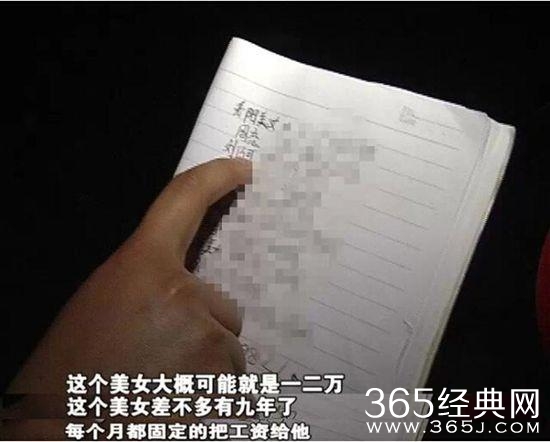 阳美女
刘
这个美女大概可能就是一二万
这个美女差不多有九年了
每个月都固定的把工资给他
365经典网
WWW.365J.COM